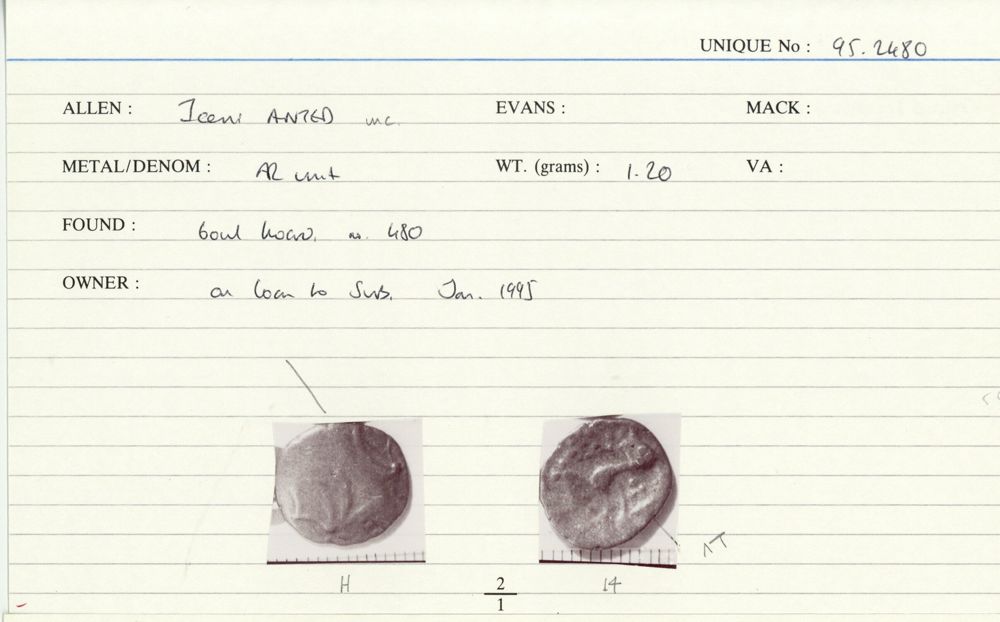 UNIQUE No : 95.2480
ALLEN : Iceni ANTED unc. EVANS : MACK :
METAL/DENOM : AR unit WT. (grams) : 1.20 VA :
FOUND : bowl hoard, no. 480
OWNER : on loan to Jan. 1995
H 2/1 14